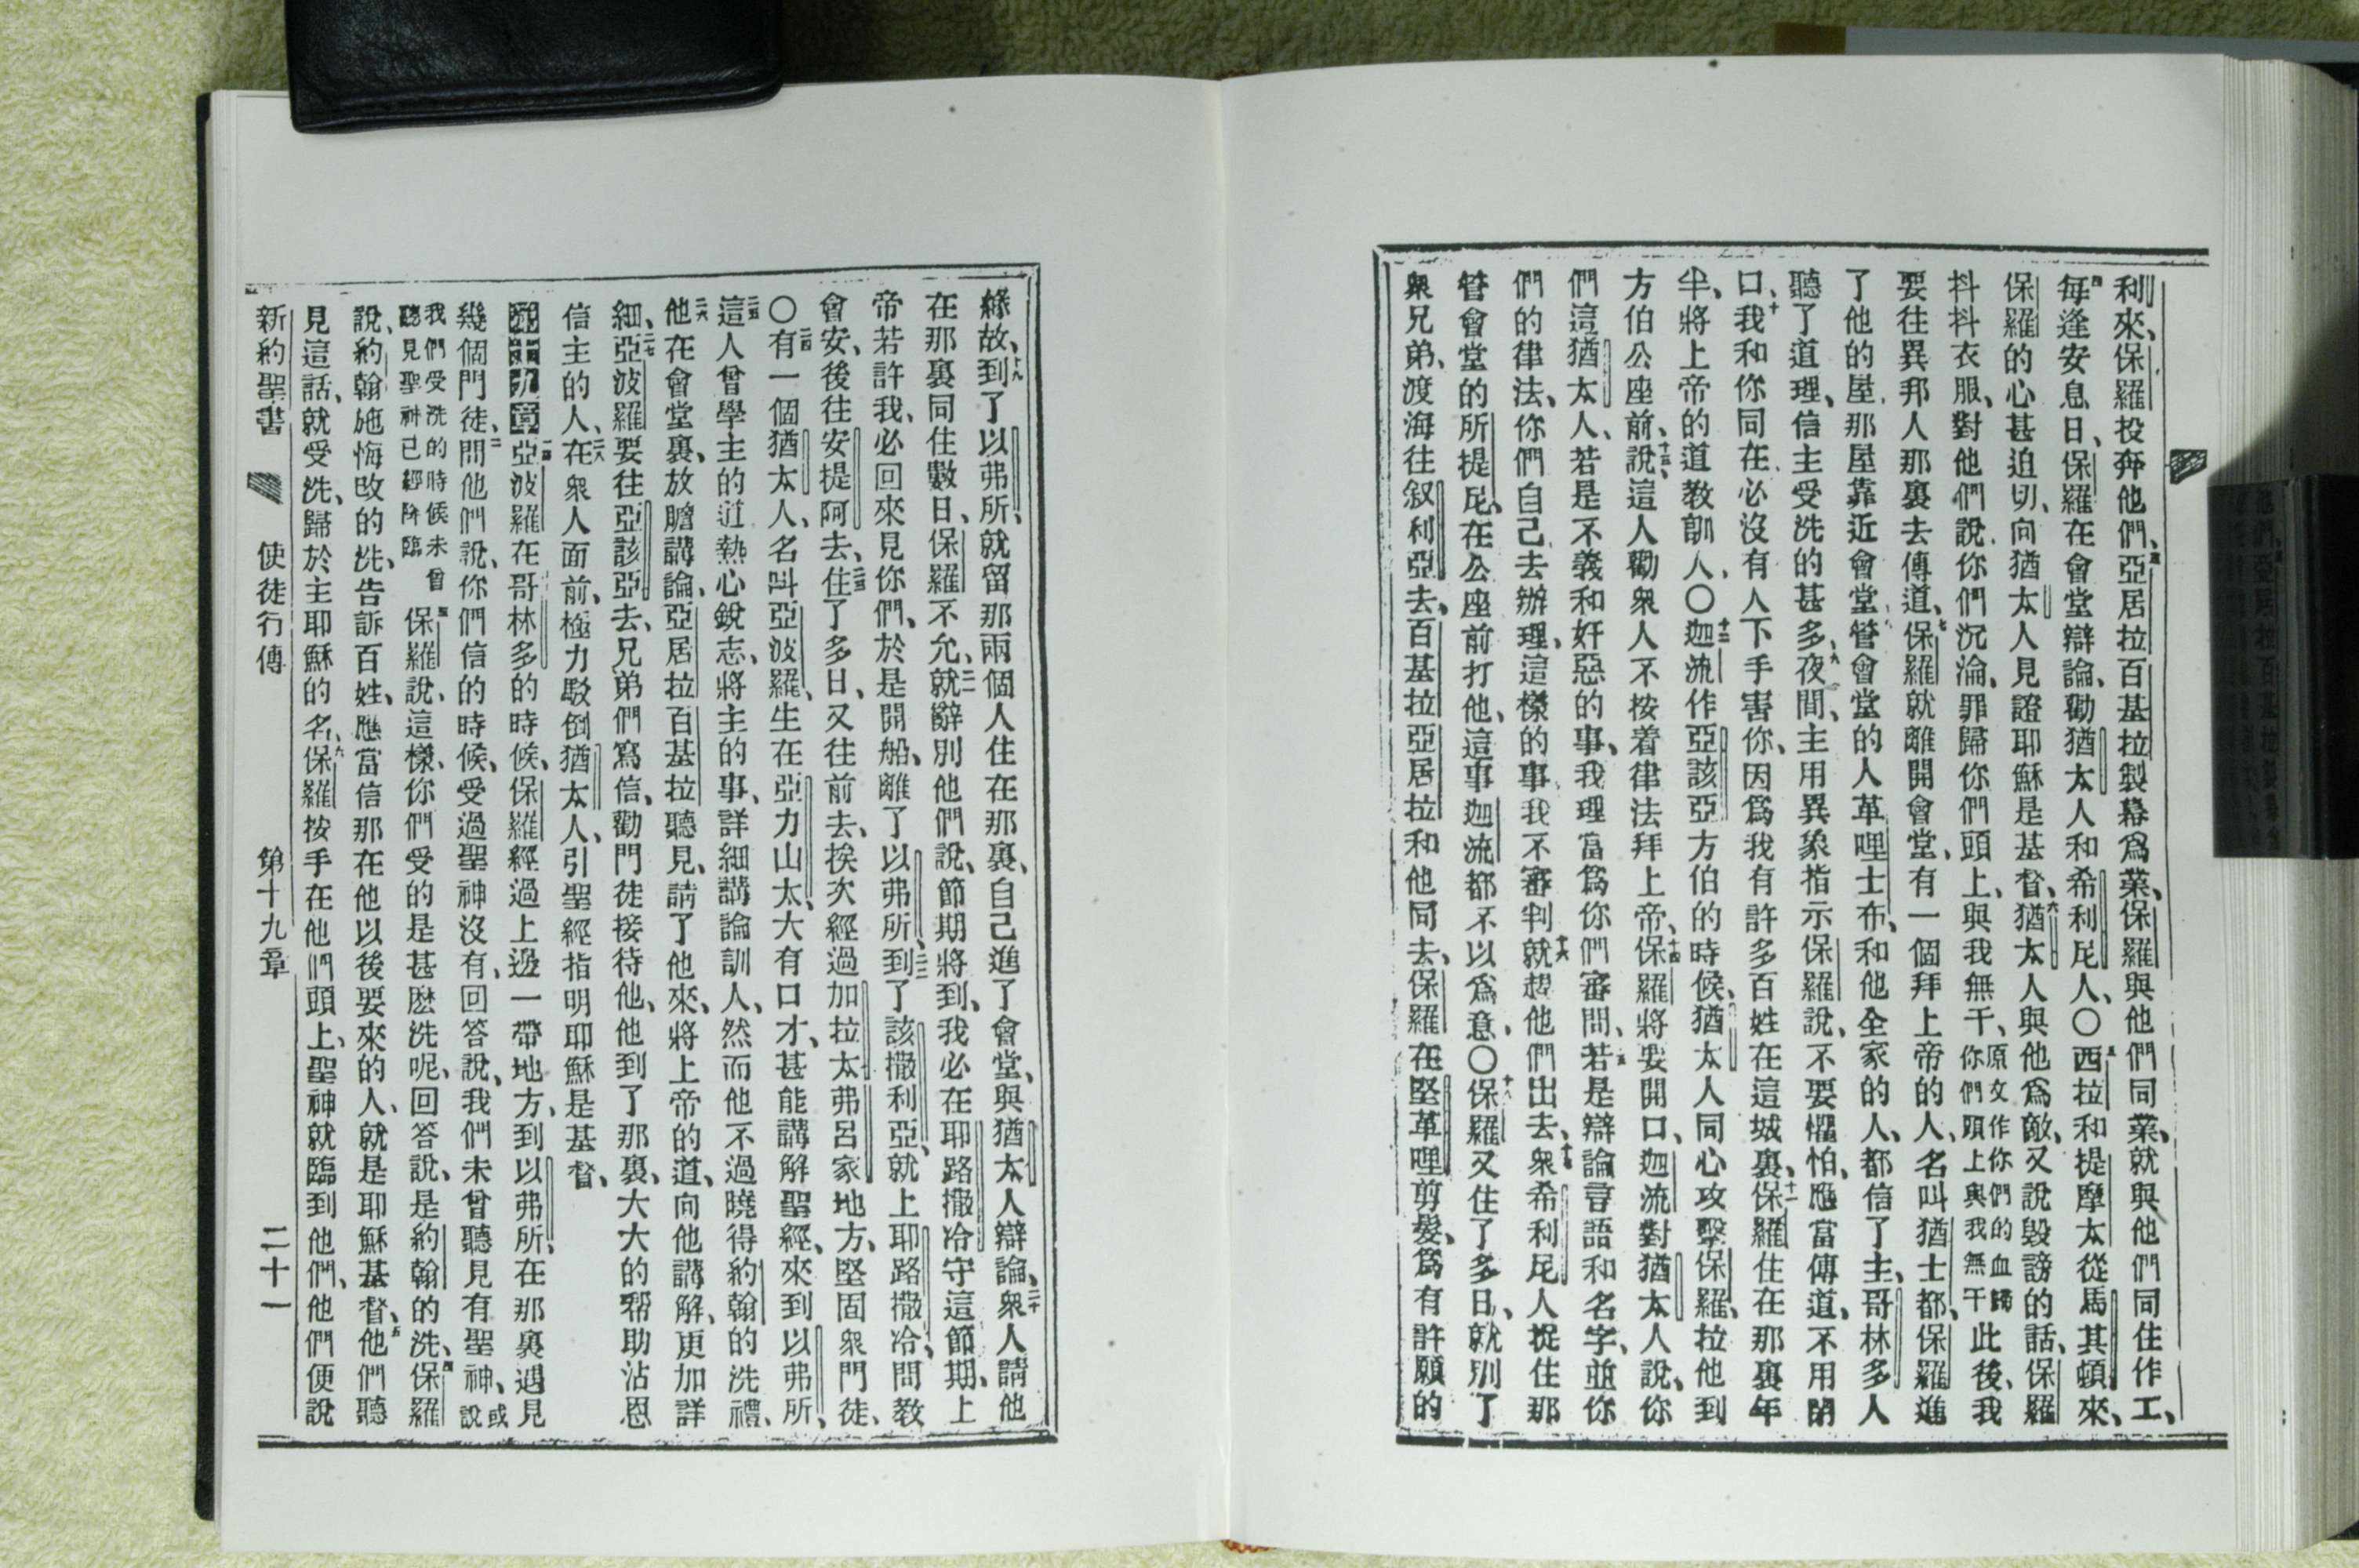 利來、保羅投奔他們、三亞居拉百基拉製幕爲業、保羅與他們同業、就與他們同住作工、
四每逢安息日、保羅在會堂辯論、勸猶太人和希利尼人、〇五西拉和提摩太從馬其頓來、
保羅的心甚迫切、向猶太人見證耶穌是基督、六猶太人與他爲敵、又說毀謗的話、保羅
抖抖衣服、對他們說、你們沉淪、罪歸你們頭上、與我無干、原文作你們的血歸你們頭上與我無干此後、我
要往異邦人那裏去傳道、七保羅就離開會堂、有一個拜上帝的人、名叫猶士都、保羅進
了他的屋、那屋靠近會堂、八管會堂的人革哩士布、和他全家的人、都信了主、哥林多人
聽了道理、信主受洗的甚多、九夜間、主用異象指示保羅說、不要懼怕、應當傳道、不用閉
口、十我和你同在、必沒有人下手害你、因爲我有許多百姓在這城裏、十一保羅住在那裏年
半、將上帝的道教訓人、〇十二迦流作亞該亞方伯的時候、猶太人同心攻擊保羅、拉他到
方伯公座前、十三說、這人勸衆人不按着律法拜上帝、十四保羅將要開口、迦流對猶太人說、你
們這猶太人、若是不義和奸惡的事、我理當爲你們審問、十五若是辯論言語和名字、並你
們的律法、你們自己去辦理、這樣的事、我不審判、十六就趕他們出去、十七衆希利尼人捉住那
管會堂的所提尼、在公座前打他、這事迦流都不以爲意、〇十八保羅又住了多日、就別了
衆兄弟、渡海往叙利亞去、百基拉亞居拉和他同去、保羅在堅革哩剪髮、爲有許願的
緣故、十九到了以弗所、就留那兩個人住在那裏、自己進了會堂、與猶太人辯論、二十衆人請他
在那裏同住數日、保羅不允、二一就辭別他們說、節期將到、我必在耶路撒冷守這節期、上
帝若許我、必回來見你們、於是開船、離了以弗所、二二到了該撒利亞、就上耶路撒冷、問教
會安、後往安提阿去、二三住了多日、又往前去、挨次經過加拉太弗呂家地方、堅固衆門徒、
〇二四有一個猶太人、名叫亞波羅、生在亞力山太、大有口才、甚能講解聖經、來到以弗所、
二五這人曾學主的道、熱心銳志、將主的事、詳細講論訓人、然而他不過曉得約翰的洗禮、
二六他在會堂裏、放膽講論、亞居拉百基拉聽見、請了他來、將上帝的道、向他講解、更加詳
細、二七亞波羅要往亞該亞去、兄弟們寫信、勸門徒接待他、他到了那裏、大大的帮助沾恩
信主的人、二八在衆人面前、極力駁倒猶太人、引聖經指明耶穌是基督、
第十九章一亞波羅在哥林多的時候、保羅經過上邊一帶地方、到以弗所、在那裏遇見
幾個門徒、二問他們說、你們信的時候、受過聖神沒有、回答說、我們未曾聽見有聖神、或說
我們受洗的時候未曾聽見聖神已經降臨三保羅說、這樣、你們受的是甚麽洗呢、回答說、是約翰的洗、四保羅
說、約翰施悔改的洗、告訴百姓、應當信那在他以後要來的人、就是耶穌基督、五他們聽
見這話、就受洗、歸於主耶穌的名、六保羅按手在他們頭上、聖神就臨到他們、他們便說
新約聖書 使徒行傳 第十九章 二十一